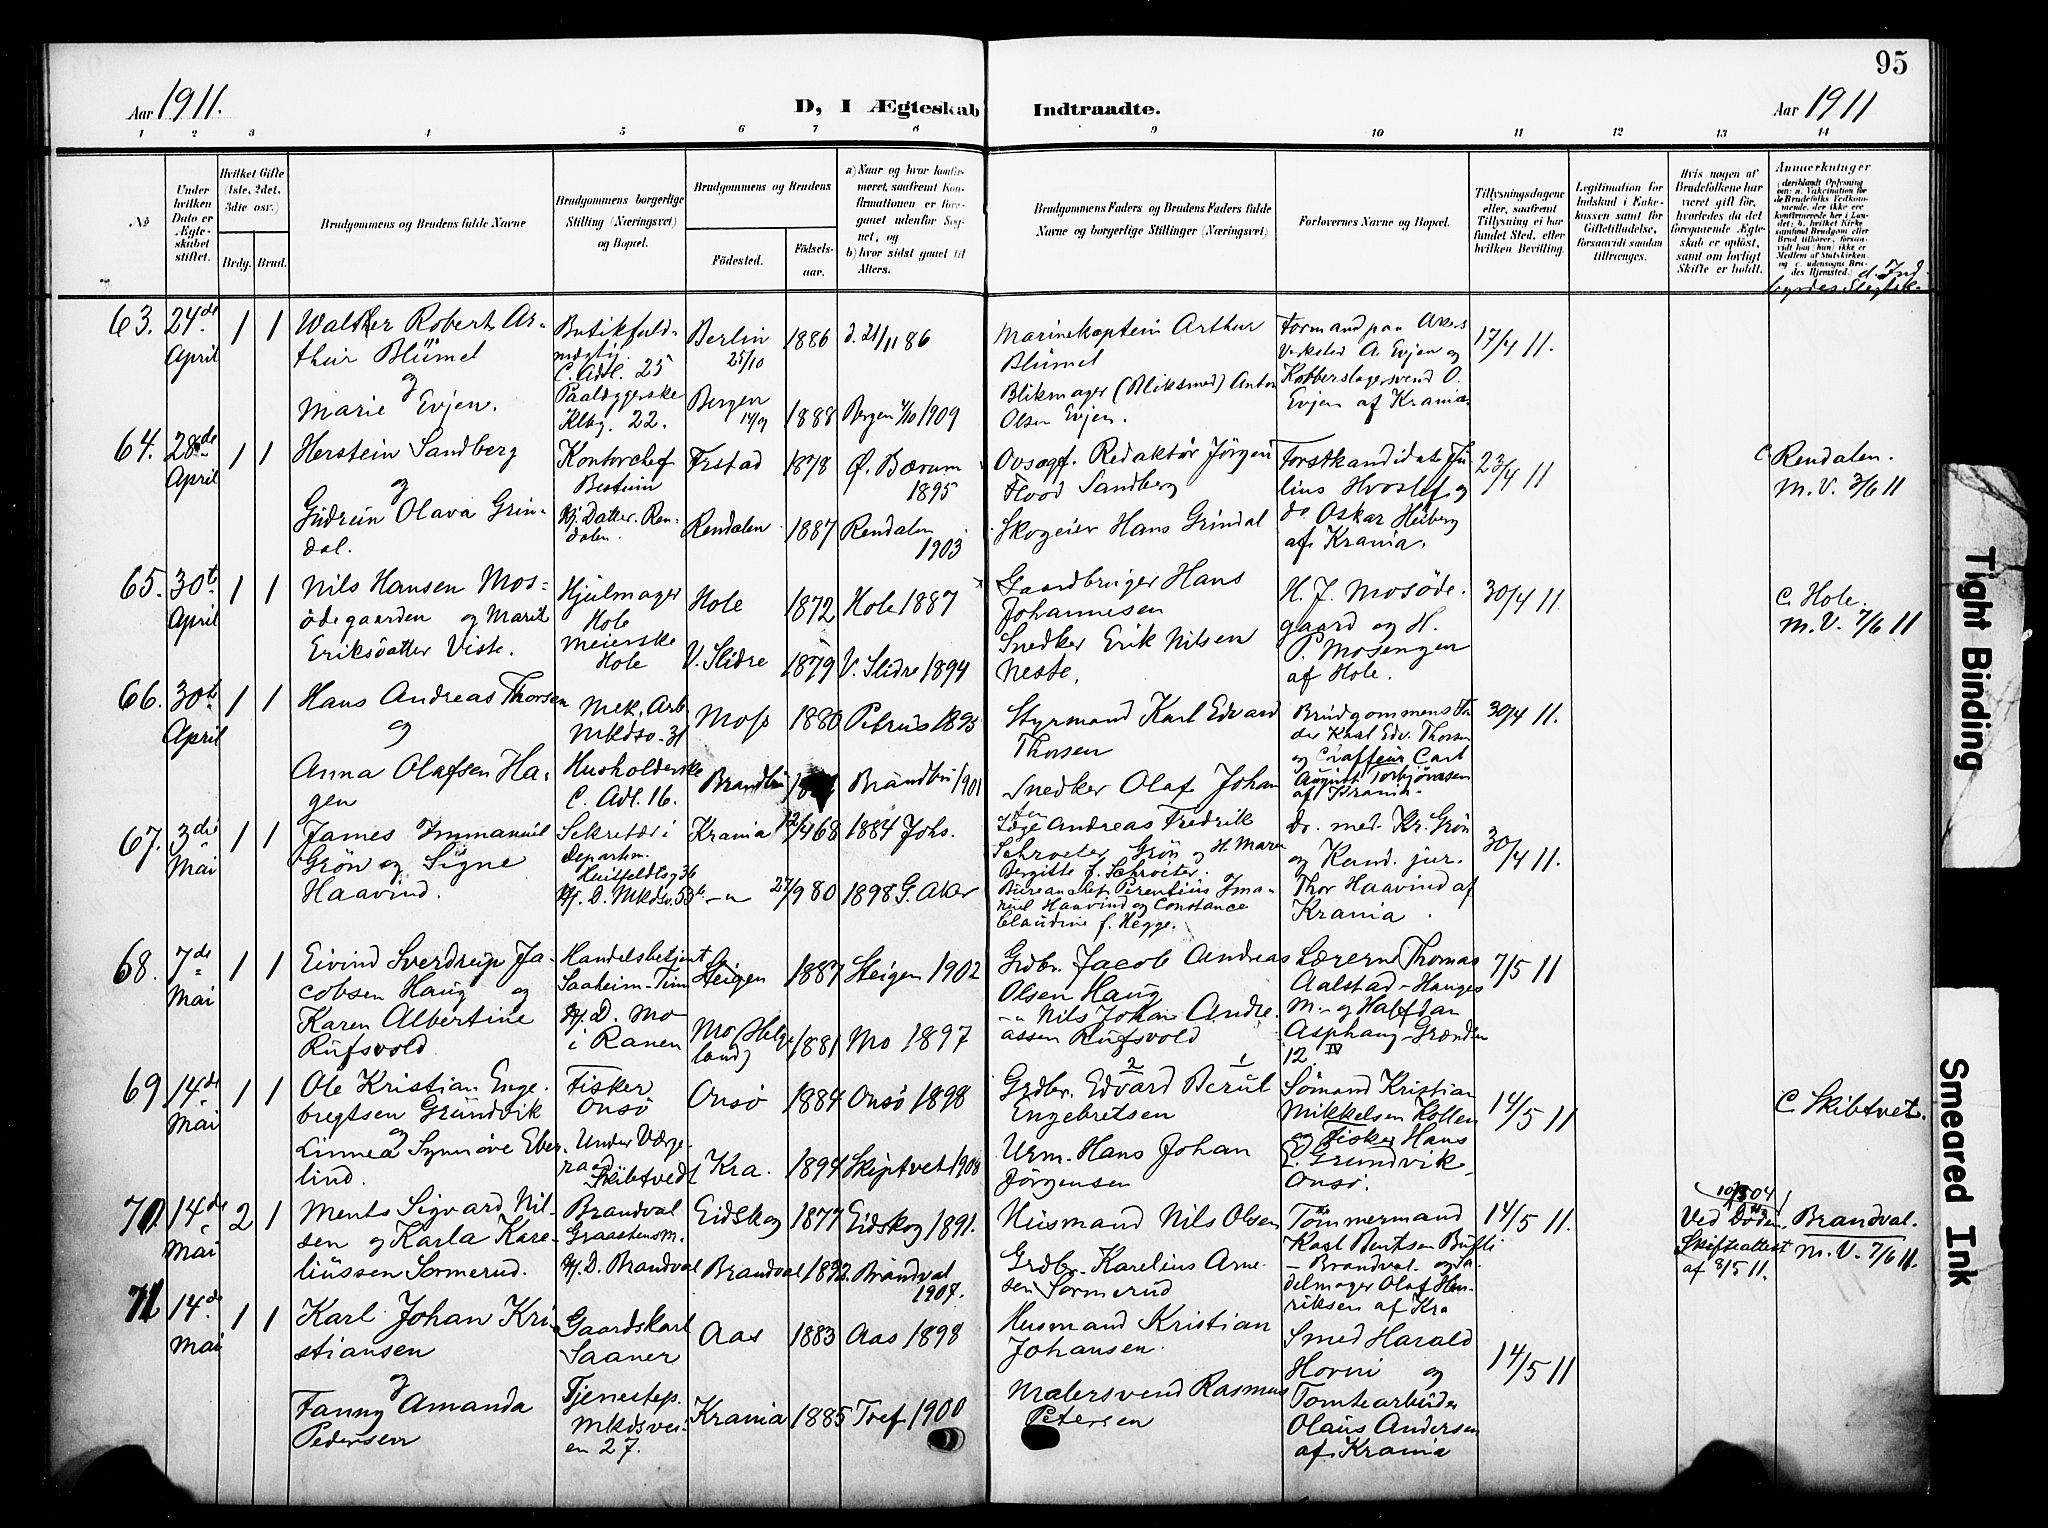 95
Aar 1911.
D, I Ægteskab Indtraadte.
Aar 1911
1 2 3 4 5 6 7 8 9 10 11 12 13 14
No
Under hvilken Dato er Ægteskabet stiftet.
Hvilket Gifte (1ste, 2det, 3die osv.)
Brdg. Brud.
Brudgommens og Brudens fulde Navne
Brudgommens borgerlige Stilling (Næringsvei) og Bopæl.
Brudgommens og Brudens
Födested.
Födselsaar.
a) Naar og hvor konfirmeret, saafremt Konfirmationen er foregaaet udenfor Sognet, og
b) hvor sidst gaaet til Alters.
Brudgommens Faders og Brudens Faders fulde Navne og borgerlige Stillinger (Næringsvei)
Forlovernes Navne og Bopæl.
Tillysningsdagene eller, saafremt Tillysning ei har fundet Sted, efter hvilken Bevilling.
Legitimation for Indskud i Enkekassen samt for Giftetilladelse, forsaavidt saadan tiltrænges.
Hvis nogen af Brudefolkene har været gift før, hvorledes da det foregaaende Ægteskab er oplöst, samt om lovligt Skifte er holdt.
Anmærkninger
d. Ind-
63. 24de April 1 1
Walther Robert Ar-
thur Blümel
og
Marie Evjen.
C. Adl. 25
22.
Berlin 25/10 1886 d. 21/11 86
Bergen 14/9 1888 Bergen 4/10 1909
Marinekaptein Arthur
Blümel
Blikmager (Bliksmed) Anton
Olsen Evjen.
Formand paa Akers
Verksted A. Evjen og
Kobberslagersvend O.
Evjen af Krania.
17/4 11.
64. 28de April 1 1
Herstein Sandberg
og
Gudrun Olava Grin-
dal.
Kontorchef
Bestum
Hj. Datter. Ren-
dalen.
1878 Ø. Bærum
1895
Rendalen 1887 Rendalen
1903
Ovsogf. Redaktør Jörgen
Flood Sandberg
Skogeier Hans Grindal
Forstkandidate Ju-
lius Hvoslef og
do Oskar Heiberg
af Krania.
23/4 11
C Rendalen.
M. V. 3/6 11
65. 30te April 1 1
Nils Hansen Mos-
ödegaarden og Marit
Eriksdatter Viste.
Hjulmager
Hole
Meierske
Hole
Hole 1872 Hole 1887
V. Slidre 1879 V. Slidre 1894
Gaardbruger Hans
Johannesen
Snedker Erik Nilsen
Neste.
H. J. Mosöde-
gaard og H.
P. Mosengen
af Hole.
30/4 11.
C. Hole.
M. V. 7/6 11
66. 30te April 1 1
Hans Andreas Thorsen
og
Anna Olafsen Ha-
gen
Mek. Arb.
Husholderske
C. Adl. 16.
Moss 1880 Petrus 1895
Brandbu Brandbu 1901
Styrmand Karl Edvard
Thorsen
Snedker Olaf Johan
sen
Brudgommens Fa-
der Karl Edv. Thorsen
og Chaffeur Carl
August Torbjörnsen
af Krania.
30/4 11.
67. 3die Mai 1 1
James Immanuel
Grön og Signe
Haavind.
Sekretær i
Departm.
Huitfeldtsg 36
Krania 12/4 68 1884 Johs.
27/9 80 1898 G. Aker
Læge Andreas Fredrik
Schroeter Grön og H. Maren
Bergitte f. Schröter.
Constance
Claudine f. Hegge.
Dr. med. Kr. Grön
og Kand. jur.
Thor Haavind af
Krania.
30/4 11.
68. 7de Mai 1 1
Eivind Sverdrup Ja-
cobsen Haug og
Karen Albertine
Rufsvold
Handelsbetjent
Saaheim-Tinn
Hj. D. Mo
i Ranen
Steigen 1887 Steigen 1902
Mo (Helge-
land) 1881 Mo 1897
Grdbr. Jacob Andreas
Olsen Haug
-"- Nils Johan Andre-
assen Rufsvold
Lærerne Thomas
Aalstad-Hauges
M.- og Halfdan
Asphaug-Grønden
12 IV
7/5 11
69 14de Mai 1 1
Ole Kristian Enge-
bregtsen Grundvik
og
Linnea Synnöve Eber-
lind.
Fisker
Onsö
Under Værge-
raad
Skibtvedt
Onsö 1884 Onsö 1898
Kra. 1894 Skiptvet 1908
Grdbr. Edvard Berul
Engebretsen
Urm. Hans Johan
Jörgensen
Sömand Kristian
Mikkelsen Kollen
og Fisker Hans
E. Grundvik,
Onsö.
14/5 11
C Skibtvet.
70. 14de Mai 2 1
Ments Sigvard Nil-
sen og Karla Kare-
liussen Sormerud.
Brandval
Graastensm.
Hj. D. Brandval
Eidskog 1877 Eidskog 1891.
Brandval 1892. Brandval
1907.
Husmand Nils Olsen
Grdbr. Karelius Arne-
sen Sormerud
Tömmermand
Karl Bentsen Bufli
- Brandval- og Sa-
delmager Olaf Hen-
riksen af Kra
14/5 11.
Ved Döden,
Skifteattest
af 8/5 11.
Brandval.
M. V. 7/6 11.
71 14de Mai 1 1
Karl Johan Kri-
stiansen
og
Fanny Amanda
Pedersen
Gaardskarl
Saaner
Tjenestep.
Mkdsvei-
en 27.
Aas 1883 Aas 1898
Krania 1885 Tref 1900
Husmand Kristian
Johansen.
Malersvend Rasmus
Petersen
Smed Harald
Hovni og
Tomtearbeider
Olaus Andersen
af Krania
14/5 11
Tight Binding
Smeared Ink